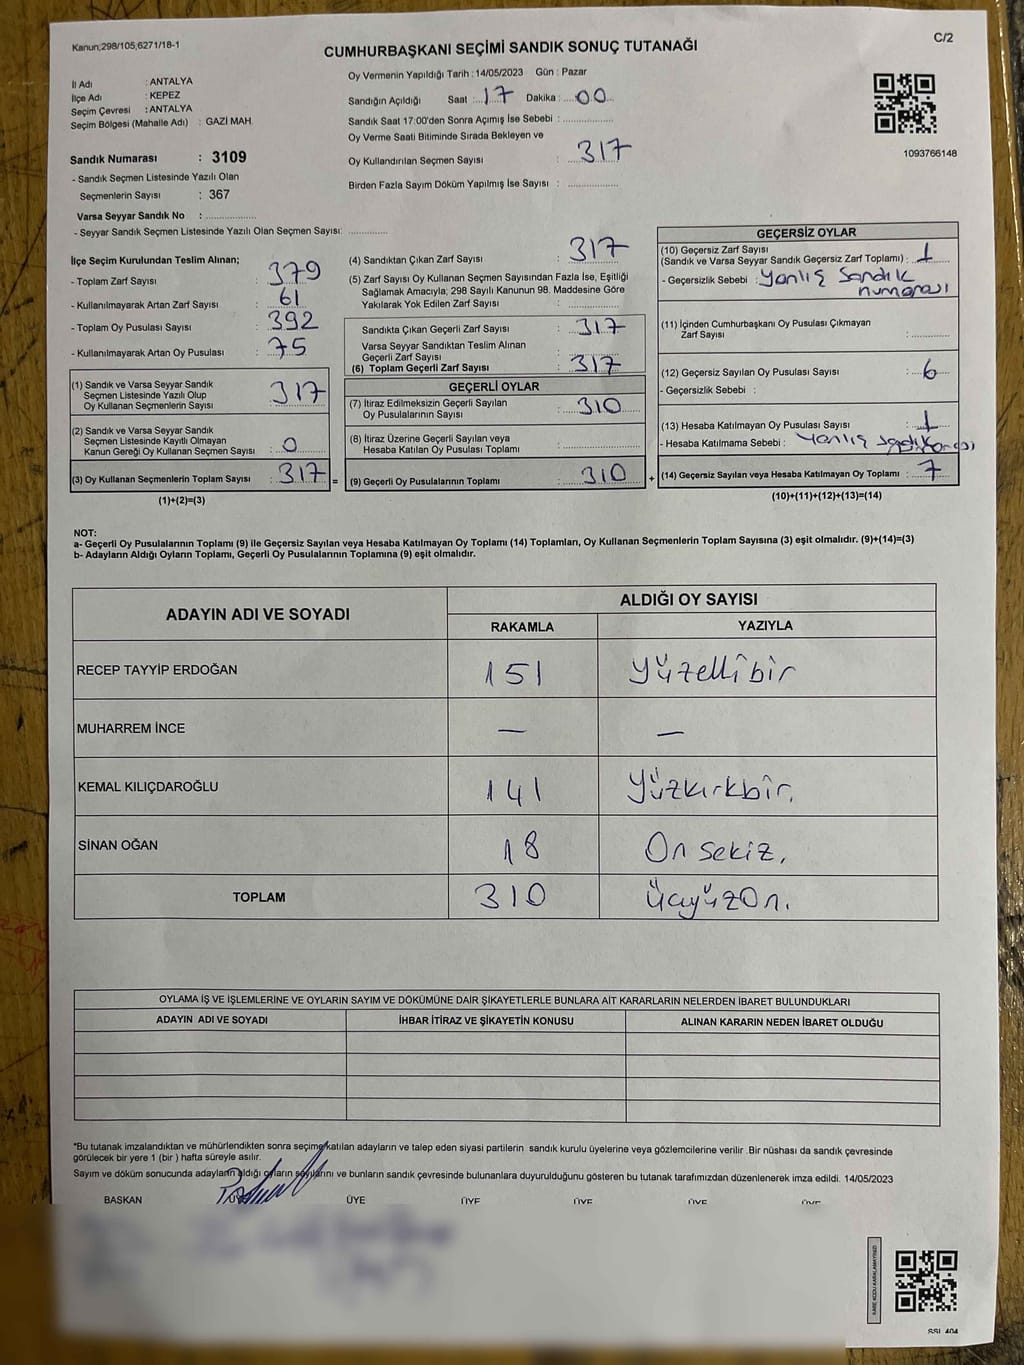 Kanun;298/105;6271/18-1
CUMHURBAŞKANI SEÇİMİ SANDIK SONUÇ TUTANAĞI
C/2
İl Adı : ANTALYA
İlçe Adı : KEPEZ
Seçim Çevresi : ANTALYA
Seçim Bölgesi (Mahalle Adı) : GAZİ MAH.
Sandık Numarası : 3109
- Sandık Seçmen Listesinde Yazılı Olan
Seçmenlerin Sayısı : 367
Varsa Seyyar Sandık No : ..................
- Seyyar Sandık Seçmen Listesinde Yazılı Olan Seçmen Sayısı: .............
Oy Vermenin Yapıldığı Tarih : 14/05/2023 Gün : Pazar
Sandığın Açıldığı Saat : 17 Dakika : 00
Sandık Saat 17:00'den Sonra Açımış İse Sebebi : ..................
Oy Verme Saati Bitiminde Sırada Bekleyen ve
Oy Kullandırılan Seçmen Sayısı : 317
Birden Fazla Sayım Döküm Yapılmış İse Sayısı : ..................
1093766148
İlçe Seçim Kurulundan Teslim Alınan;
- Toplam Zarf Sayısı : 379
- Kullanılmayarak Artan Zarf Sayısı : 61
- Toplam Oy Pusulası Sayısı : 392
- Kullanılmayarak Artan Oy Pusulası : 75
(1) Sandık ve Varsa Seyyar Sandık
Seçmen Listesinde Yazılı Olup
Oy Kullanan Seçmenlerin Sayısı : 317
(2) Sandık ve Varsa Seyyar Sandık
Seçmen Listesinde Kayıtlı Olmayan
Kanun Gereği Oy Kullanan Seçmen Sayısı : 0
(3) Oy Kullanan Seçmenlerin Toplam Sayısı : 317 =
(1)+(2)=(3)
(4) Sandıktan Çıkan Zarf Sayısı : 317
(5) Zarf Sayısı Oy Kullanan Seçmen Sayısından Fazla İse, Eşitliği
Sağlamak Amacıyla, 298 Sayılı Kanunun 98. Maddesine Göre
Yakılarak Yok Edilen Zarf Sayısı : ..................
Sandıkta Çıkan Geçerli Zarf Sayısı : 317
Varsa Seyyar Sandıktan Teslim Alınan
Geçerli Zarf Sayısı :
(6) Toplam Geçerli Zarf Sayısı : 317
GEÇERLİ OYLAR
(7) İtiraz Edilmeksizin Geçerli Sayılan
Oy Pusulalarının Sayısı : 310
(8) İtiraz Üzerine Geçerli Sayılan veya
Hesaba Katılan Oy Pusulası Toplamı : ..................
(9) Geçerli Oy Pusulalarının Toplamı : 310 +
GEÇERSİZ OYLAR
(10) Geçersiz Zarf Sayısı
(Sandık ve Varsa Seyyar Sandık Geçersiz Zarf Toplamı) : 1
- Geçersizlik Sebebi : Yanlış sandık
numarası
(11) İçinden Cumhurbaşkanı Oy Pusulası Çıkmayan
Zarf Sayısı : .............
(12) Geçersiz Sayılan Oy Pusulası Sayısı : 6
- Geçersizlik Sebebi :
(13) Hesaba Katılmayan Oy Pusulası Sayısı : 1
- Hesaba Katılmama Sebebi : Yanlış sandık
(14) Geçersiz Sayılan veya Hesaba Katılmayan Oy Toplamı : 7
(10)+(11)+(12)+(13)=(14)
NOT:
a- Geçerli Oy Pusulalarının Toplamı (9) ile Geçersiz Sayılan veya Hesaba Katılmayan Oy Toplamı (14) Toplamları, Oy Kullanan Seçmenlerin Toplam Sayısına (3) eşit olmalıdır. (9)+(14)=(3)
b- Adayların Aldığı Oyların Toplamı, Geçerli Oy Pusulalarının Toplamına (9) eşit olmalıdır.
ADAYIN ADI VE SOYADI
ALDIĞI OY SAYISI
RAKAMLA YAZIYLA
RECEP TAYYİP ERDOĞAN 151 Yüzellibir
MUHARREM İNCE — —
KEMAL KILIÇDAROĞLU 141 Yüzkırkbir.
SİNAN OĞAN 18 On sekiz.
TOPLAM 310 üçyüzOn.
OYLAMA İŞ VE İŞLEMLERİNE VE OYLARIN SAYIM VE DÖKÜMÜNE DAİR ŞİKAYETLERLE BUNLARA AİT KARARLARIN NELERDEN İBARET BULUNDUKLARI
ADAYIN ADI VE SOYADI İHBAR İTİRAZ VE ŞİKAYETİN KONUSU ALINAN KARARIN NEDEN İBARET OLDUĞU
*Bu tutanak imzalandıktan ve mühürlendikten sonra seçime katılan adayların ve talep eden siyasi partilerin sandık kurulu üyelerine veya gözlemcilerine verilir .Bir nüshası da sandık çevresinde
görülecek bir yere 1 (bir ) hafta süreyle asılır.
Sayım ve döküm sonucunda adayların aldığı oyların sayılarını ve bunların sandık çevresinde bulunanlara duyurulduğunu gösteren bu tutanak tarafımızdan düzenlenerek imza edildi. 14/05/2023
BAŞKAN ÜYE ÜYE ÜYE ÜYE ÜYE
KARE KODU KARALAMAYINIZ!
SSI 404